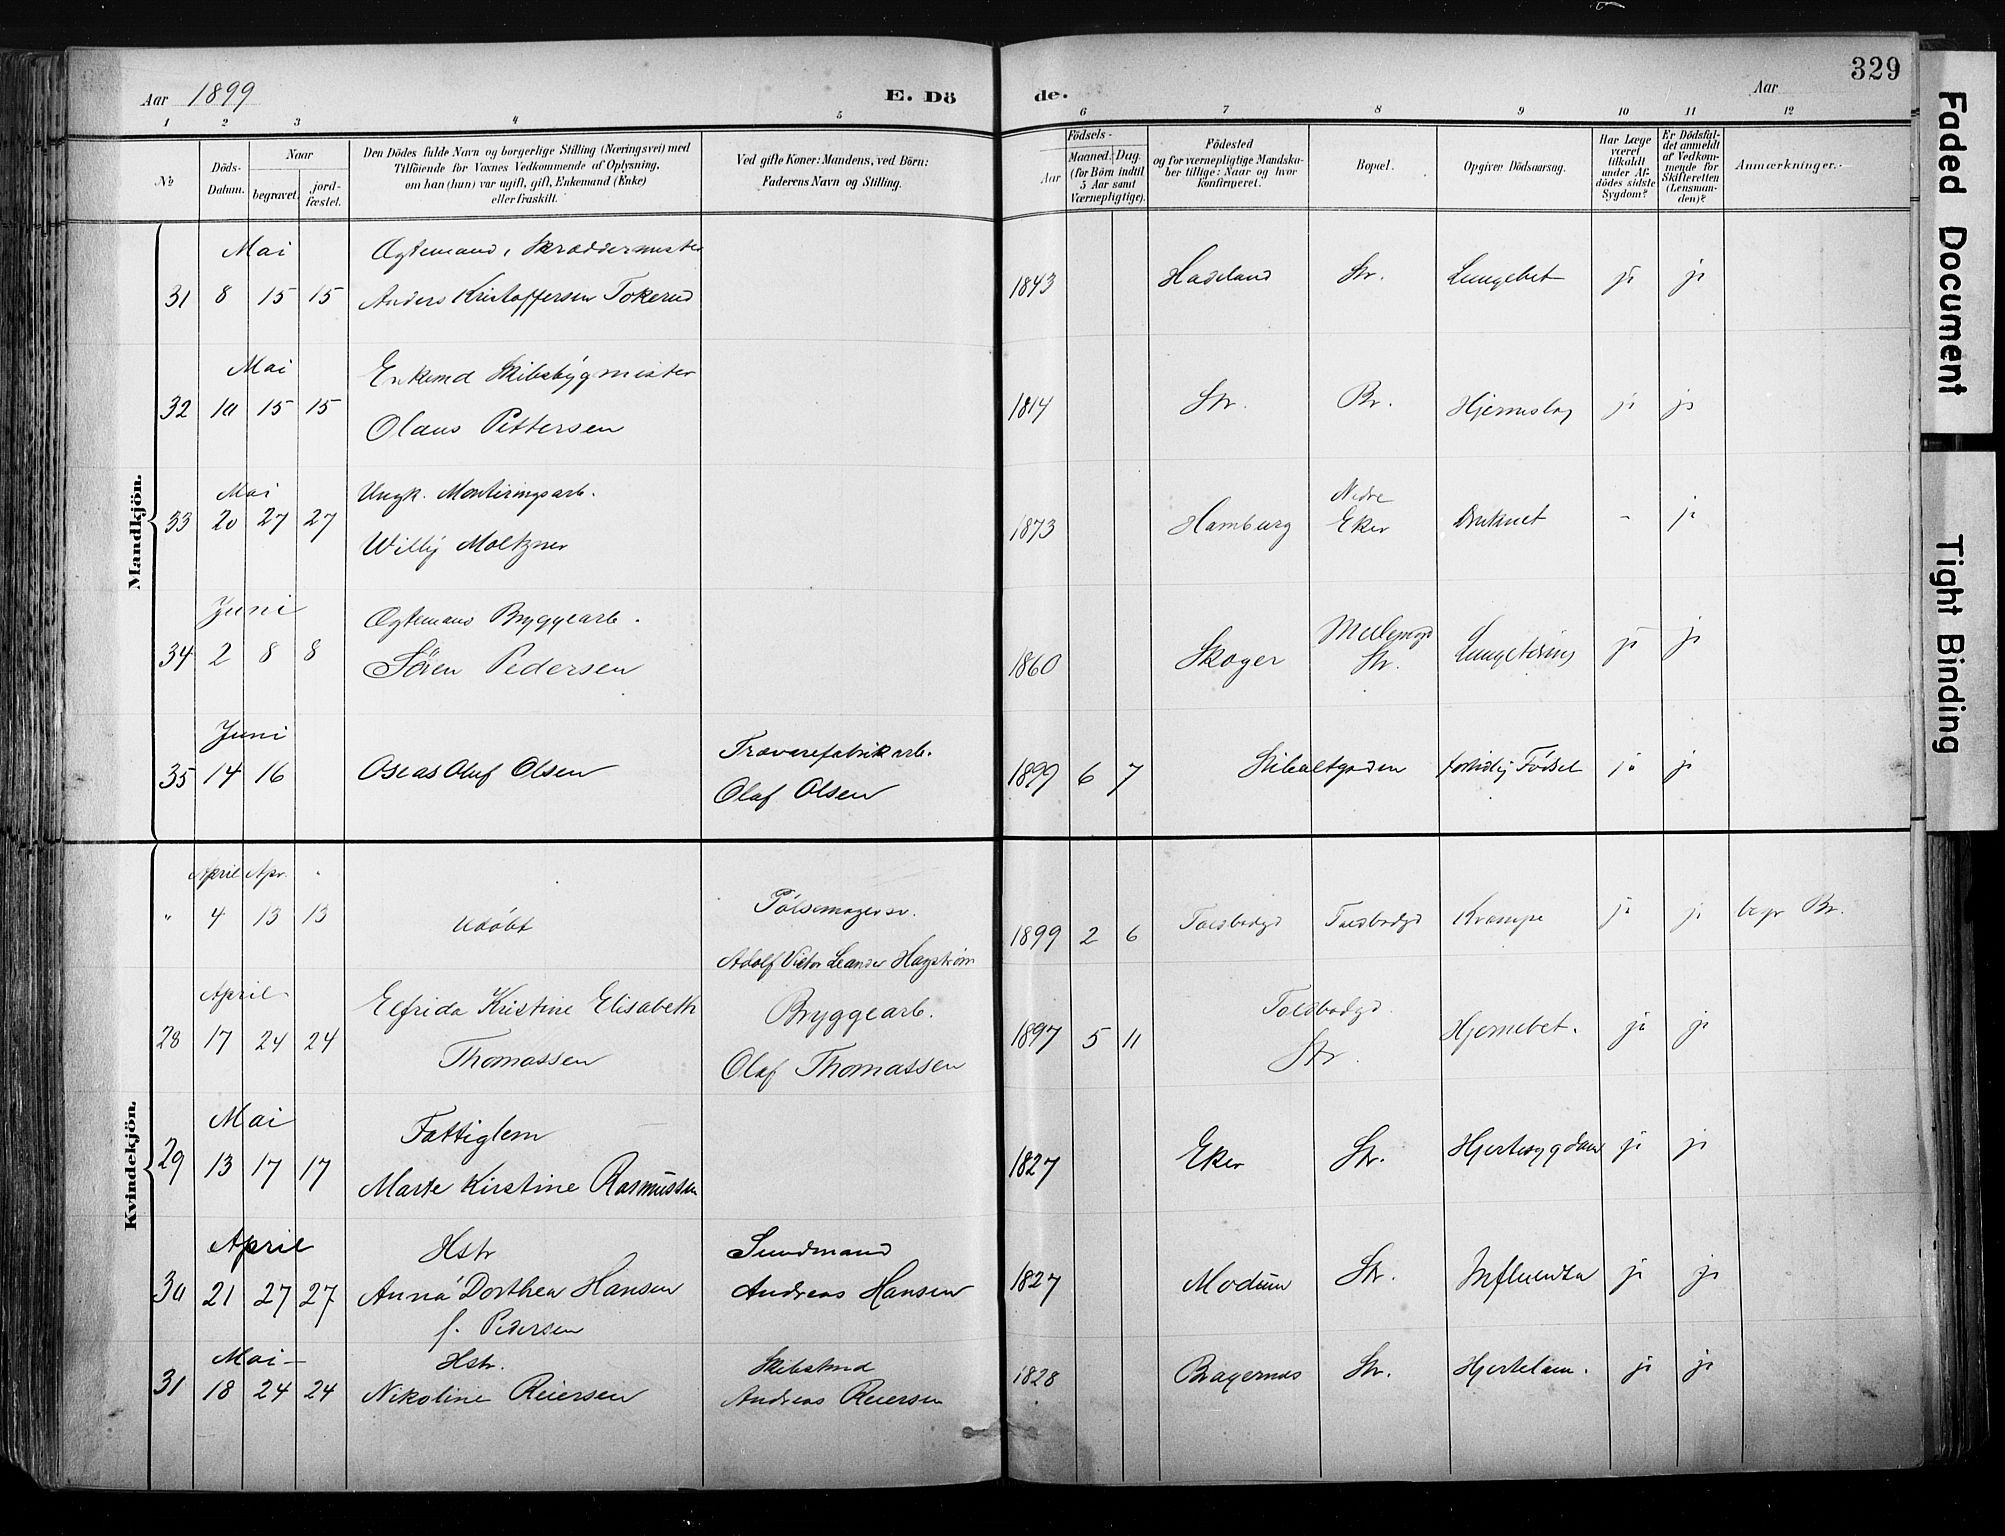 329
Aar 1899
E. Dö
de.
Aar
1 2 3 4 5
6 7 8 9 10 11 12
№
Döds-
Datum.
Naar
begravet.
jord-
fæstet.
Den Dödes fulde Navn og borgerlige Stilling (Næringsvei) med
Tilföiende for Voxnes Vedkommende af Oplysning,
om han (hun) var ugift, gift, Enkemand (Enke)
eller fraskilt.
Ved gifte Koner: Mandens, ved Börn:
Faderens Navn og Stilling.
Födsels-
Aar
Maaned. Dag.
(for Börn indtil
5 Aar samt
Værnepligtige).
Födested
og for værnepligtige Mandska-
ber tillige: Naar og hvor
konfirmeret.
Bopæl.
Opgiven Dödsaarsag.
Har Læge
været
tilkaldt
under Af-
dödes sidste
Sygdom?
Er Dödsfal-
det anmeldt
af Vedkom-
mende for
Skifteretten
(Lensman-
den)?
Anmærkninger.
Mandkjön.
Mai
Ægtemand, Skræddermester
31 8 15 15 Anders Kristoffersen Tokerud
1843 Hadeland Str. Lungebet ja ja
Mai
Enkemd Skibsbygmester
32 10 15 15 Olaus Pettersen
1814 Str. Br. Hjerneslag ja ja
Mai
Ungk. Monteringsarb.
33 20 27 27 Willy Moltzner
1873 Hamburg Nedre Eker Druknet - ja
Juni
Ægtemand Bryggearb.
34 2 8 8 Sören Pedersen
1860 Skoger Mellemgd Str. Lungetæring ja ja
Juni
35 14 16 Oseas Oluf Olsen
Trævarefabrikarb.
Olaf Olsen
1899 6 7 fortidlig Födsel ja ja
Kvindekjön.
April Apr.
" 4 13 13 Udöbt
Pölsemagersv.
Adolf Victor Leander Hagström
1899 2 6 Toldbodgd Toldbodgd Krampe ja ja begr Br.
April
28 17 24 24 Elfrida Kristine Elisabeth
Thomassen
Bryggearb.
Olaf Thomassen
1897 5 11 Toldbodgd.
Str. Hjernebet. ja ja
Mai
Fattiglem
29 13 17 17 Marte Kirstine Rasmussen
1827 Eker Str. Hjertesygdom ja ja
April
Hstr
30 21 27 27 Anna Dorthea Hansen
f. Pedersen
Sundmand
Andreas Hansen
1827 Modum Str. Influenza ja ja
Mai
Hstr.
31 18 24 24 Nikoline Reiersen
Skibstmd
Andreas Reiersen
1828 Bragernæs Str. Hjertelam. ja ja
Faded Document
Tight Binding